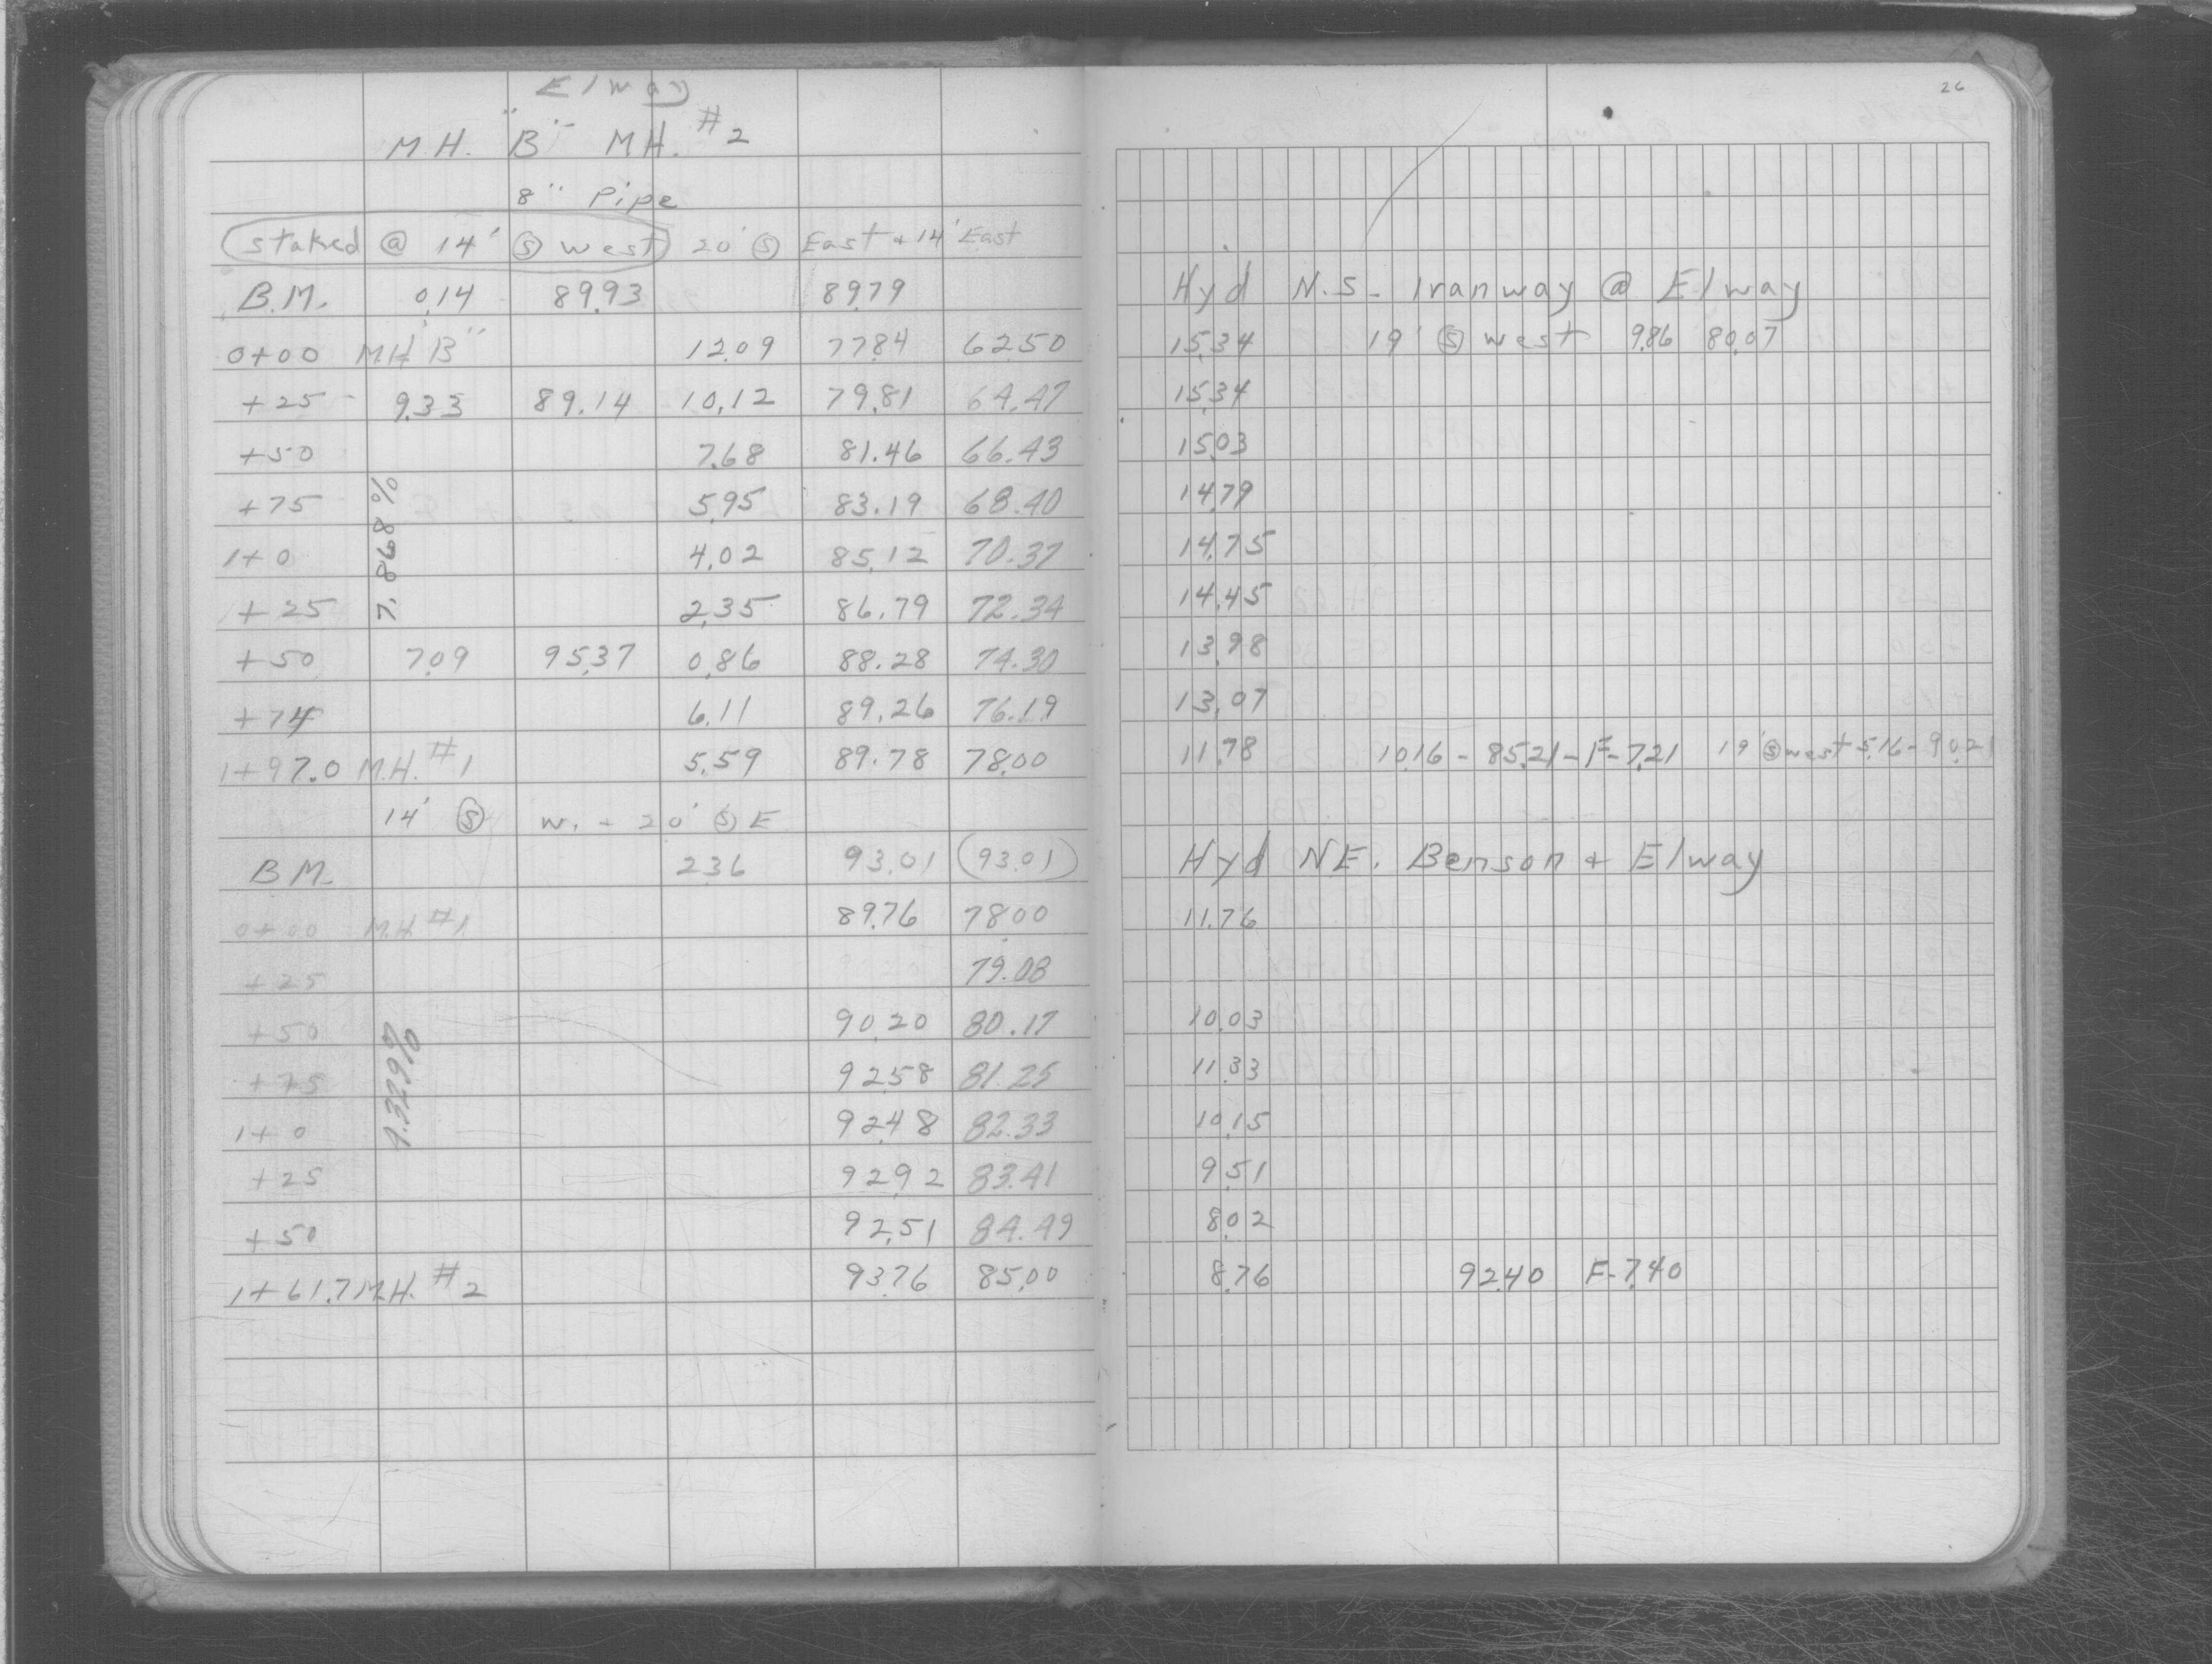 Elway
M.H. "B" - M.H. #2
8" Pipe
Staked @ 14' Ⓢ West 20' Ⓢ East & 14' East
B.M. 0.14 89.93 89.79
0+00 M.H. "B" 12.09 77.84 62.50
+25 9.33 89.14 10.12 79.81 64.47
+50 7.68 81.46 66.43
+75 5.95 83.19 68.40
1+0 4.02 85.12 70.37
+25 2.35 86.79 72.34
+50 7.09 95.37 0.86 88.28 74.30
+74 6.11 89.26 76.19
1+97.0 M.H. #1 5.59 89.78 78.00
7.868%
14' Ⓢ W. - 20' Ⓢ E
B.M. 2.36 93.01 (93.01)
0+00 M.H. #1 89.76 78.00
+25 79.08
+50 90.20 80.17
+75 92.58 81.25
1+0 92.48 82.33
+25 92.92 83.41
+50 92.51 84.49
1+61.7 M.H. #2 93.76 85.00
4.329%
26
Hyd N.S. - Iranway @ Elway
15.34 19' Ⓢ West 9.86 80.07
15.34
15.03
14.79
14.75
14.45
13.98
13.07
11.78 10.16 - 85.21 - F-7.21 19' Ⓢ west 5.16 - 90.21
Hyd NE. Benson & Elway
11.76
10.03
11.33
10.15
9.51
8.02
8.76 92.40 F-7.40